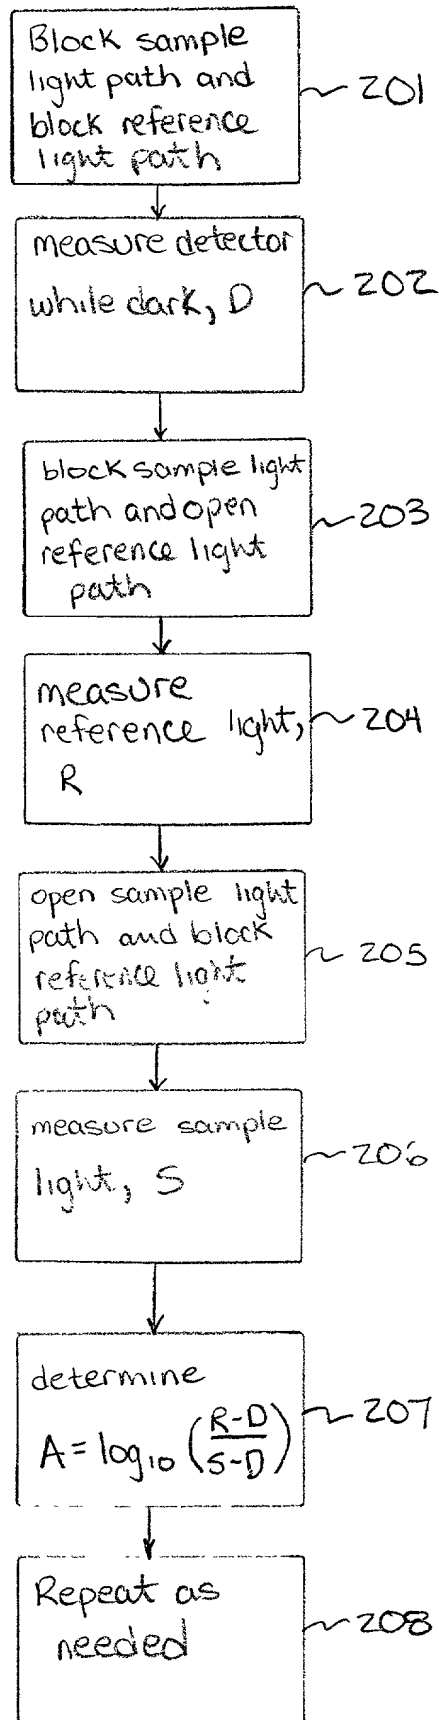 Block sample
light path and
block reference
light path
201
measure detector
while dark, D
202
block sample light
path and open
reference light
path
203
measure
reference light,
R
204
open sample light
path and block
reference light
path
205
measure sample
light, S
206
determine
A = log₁₀ (R-D / S-D)
207
Repeat as
needed
208